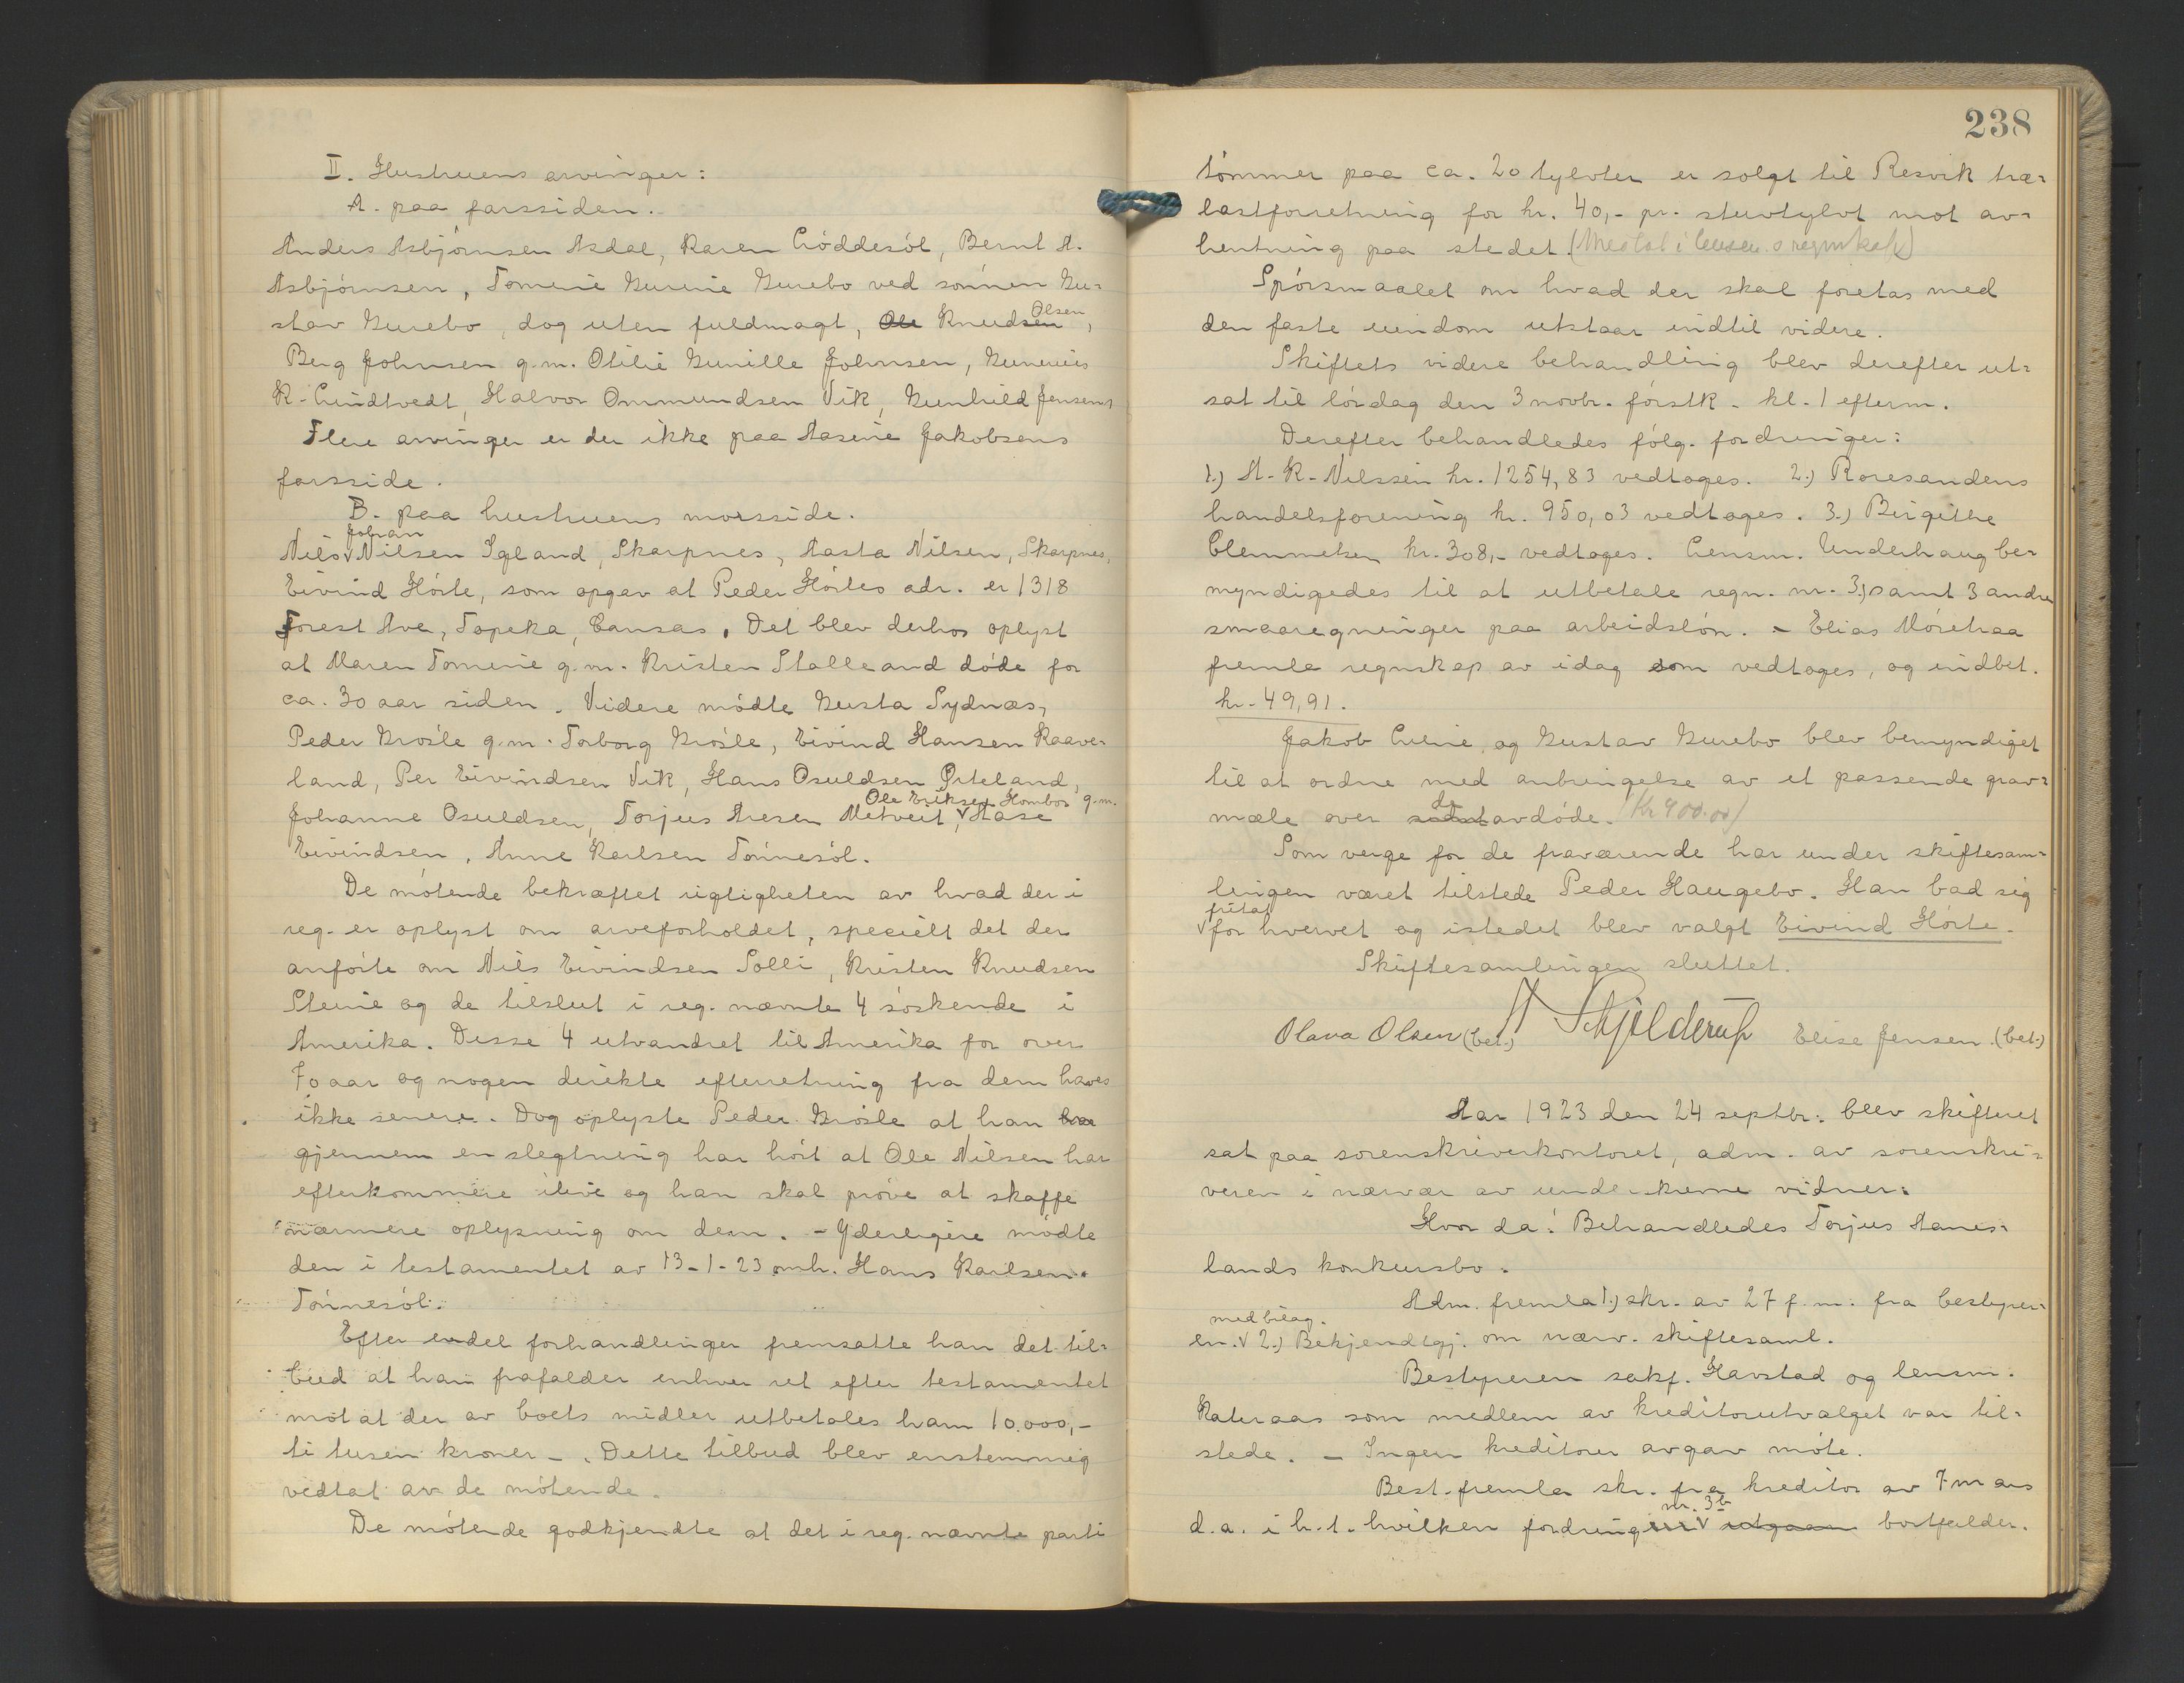 II. Hustruens arvinger:
A. paa farssiden.
Anders Asbjørnsen Asdal, Karen Løddesøl, Bernt A.
Asbjørnsen, Tomine Gurine Gurebo ved sønnen Gu-
stav Gurebo, dog uten fuldmagt, Ole Knudsen Olsen,
Berg Johnsen g.m. Otilie Gunille Johnsen, Gunnuis
K. Lindtvedt, Halvor Ommundsen Vik, Gunhild Jensen,
Flere arvinger er der ikke paa Aasine Jakobsens
farsside.
B. paa hustruens morsside.
Nils Johan Nilsen Igland, Skarpnes, Aasta Nilsen, Skarpnes,
Eivind Hørte, som opgav at Peder Hørtes adr. er 1318
Forest Ave, Topeka, Cansas. Det blev derhos oplyst
at Maren Tomine g.m. Kristen Stalleland døde for
ca. 30 aar siden. Videre mødte Gusta Sydnæs,
Peder Grøsle g.m. Torborg Grøsle, Eivind Hansen Raave-
land, Per Eivindsen Vik, Hans Osuldsen Ørteland,
Johanne Osuldsen, Torjus Aresen Metveit, Ole Eriksen Hombor g.m. Aase
Eivindsen, Anne Karlsen Tønnesøl.
De møtende bekræftet rigtigheten av hvad der i
reg. er oplyst om arveforholdet, specielt det der
anførte om Nils Eivindsen Solli, Kristen Knudsen
Steine og de tilslut i reg. nævnte 4 søskende i
Amerika. Disse 4 utvandret til Amerika for over
70 aar og nogen direkte efterretning fra dem haves
ikke senere. Dog oplyste Peder Grøsle at han har
gjennem en slegtning har hørt at Ole Nilsen har
efterkommere ilive og han skal prøve at skaffe
nærmere oplysning om dem. - Yderligere mødte
den i testamentet av 13-1-23 omh. Hans Karlsen
Tønnesøl.
Efter endel forhandlinger fremsatte han det til-
bud at han frafalder enhver ret efter testamentet
mot at der av boets midler utbetales ham 10.000,-
ti tusen kroner -. Dette tilbud blev enstemmig
vedtat av de møtende.
De møtende godkjendte at det i reg. nævnte parti
238
tømmer paa ca. 20 tylvter er solgt til Resvik træ-
lastforretning for kr. 40,- pr. stuvtylvt mot av-
hentning paa stedet.
Spørsmaalet om hvad der skal foretas med
den faste eiendom utstaar indtil videre.
Skiftets videre behandling blev derefter ut-
sat til lørdag den 3 novbr. førstk. kl. 1 efterm.
Derefter behandledes følg. fordringer:
1.) A. K. Nilssen kr. 1254,83 vedtoges. 2.) Roresandens
handelsforening kr. 950,03 vedtoges. 3.) Birgithe
Clemmetsen kr. 308,- vedtoges. Lensm. Underhaug be-
myndigedes til at utbetale regn. nr. 3,) samt 3 andre
smaaregninger paa arbeidsløn. - Elias Møretraa
fremla regnskap av idag som vedtoges, og indbet.
kr. 49,91.
Jakob Lunie og Gustav Gurebo blev bemyndiget
til at ordne med anbringelse av et passende grav-
mæle over de avdøde. (Kr 900.00)
Som verge for de fraværende har under skiftesam-
lingen været tilstede Peder Haugebo. Han bad sig
fritat for hvervet og istedet blev valgt Eivind Hørte.
Skiftesamlingen sluttet.
Olava Olsen (bet.) Schjelderup Elise Jensen. (bet.)
Aar 1923 den 24 septbr. blev skifteret
sat paa sorenskriverkontoret, adm. av sorenskri-
veren i nærvær av underskrevne vidner.
Hvor da: Behandledes Torjus Aanes-
lands konkursbo.
Adm. fremla 1.) skr. av 27 f.m. fra bestyrer-
en. med bilag. 2.) Bekjendtgj. om nærv. skiftesaml.
Bestyreren sakf. Havstad og lensm.
Kateraas som medlem av kreditorutvalget var til-
stede. - Ingen kreditorer avgav møte.
Best. fremla skr. fra kreditor av 7 mars
d.a. i h.t. hvilken fordring nr. 3b utgaar bortfalder.